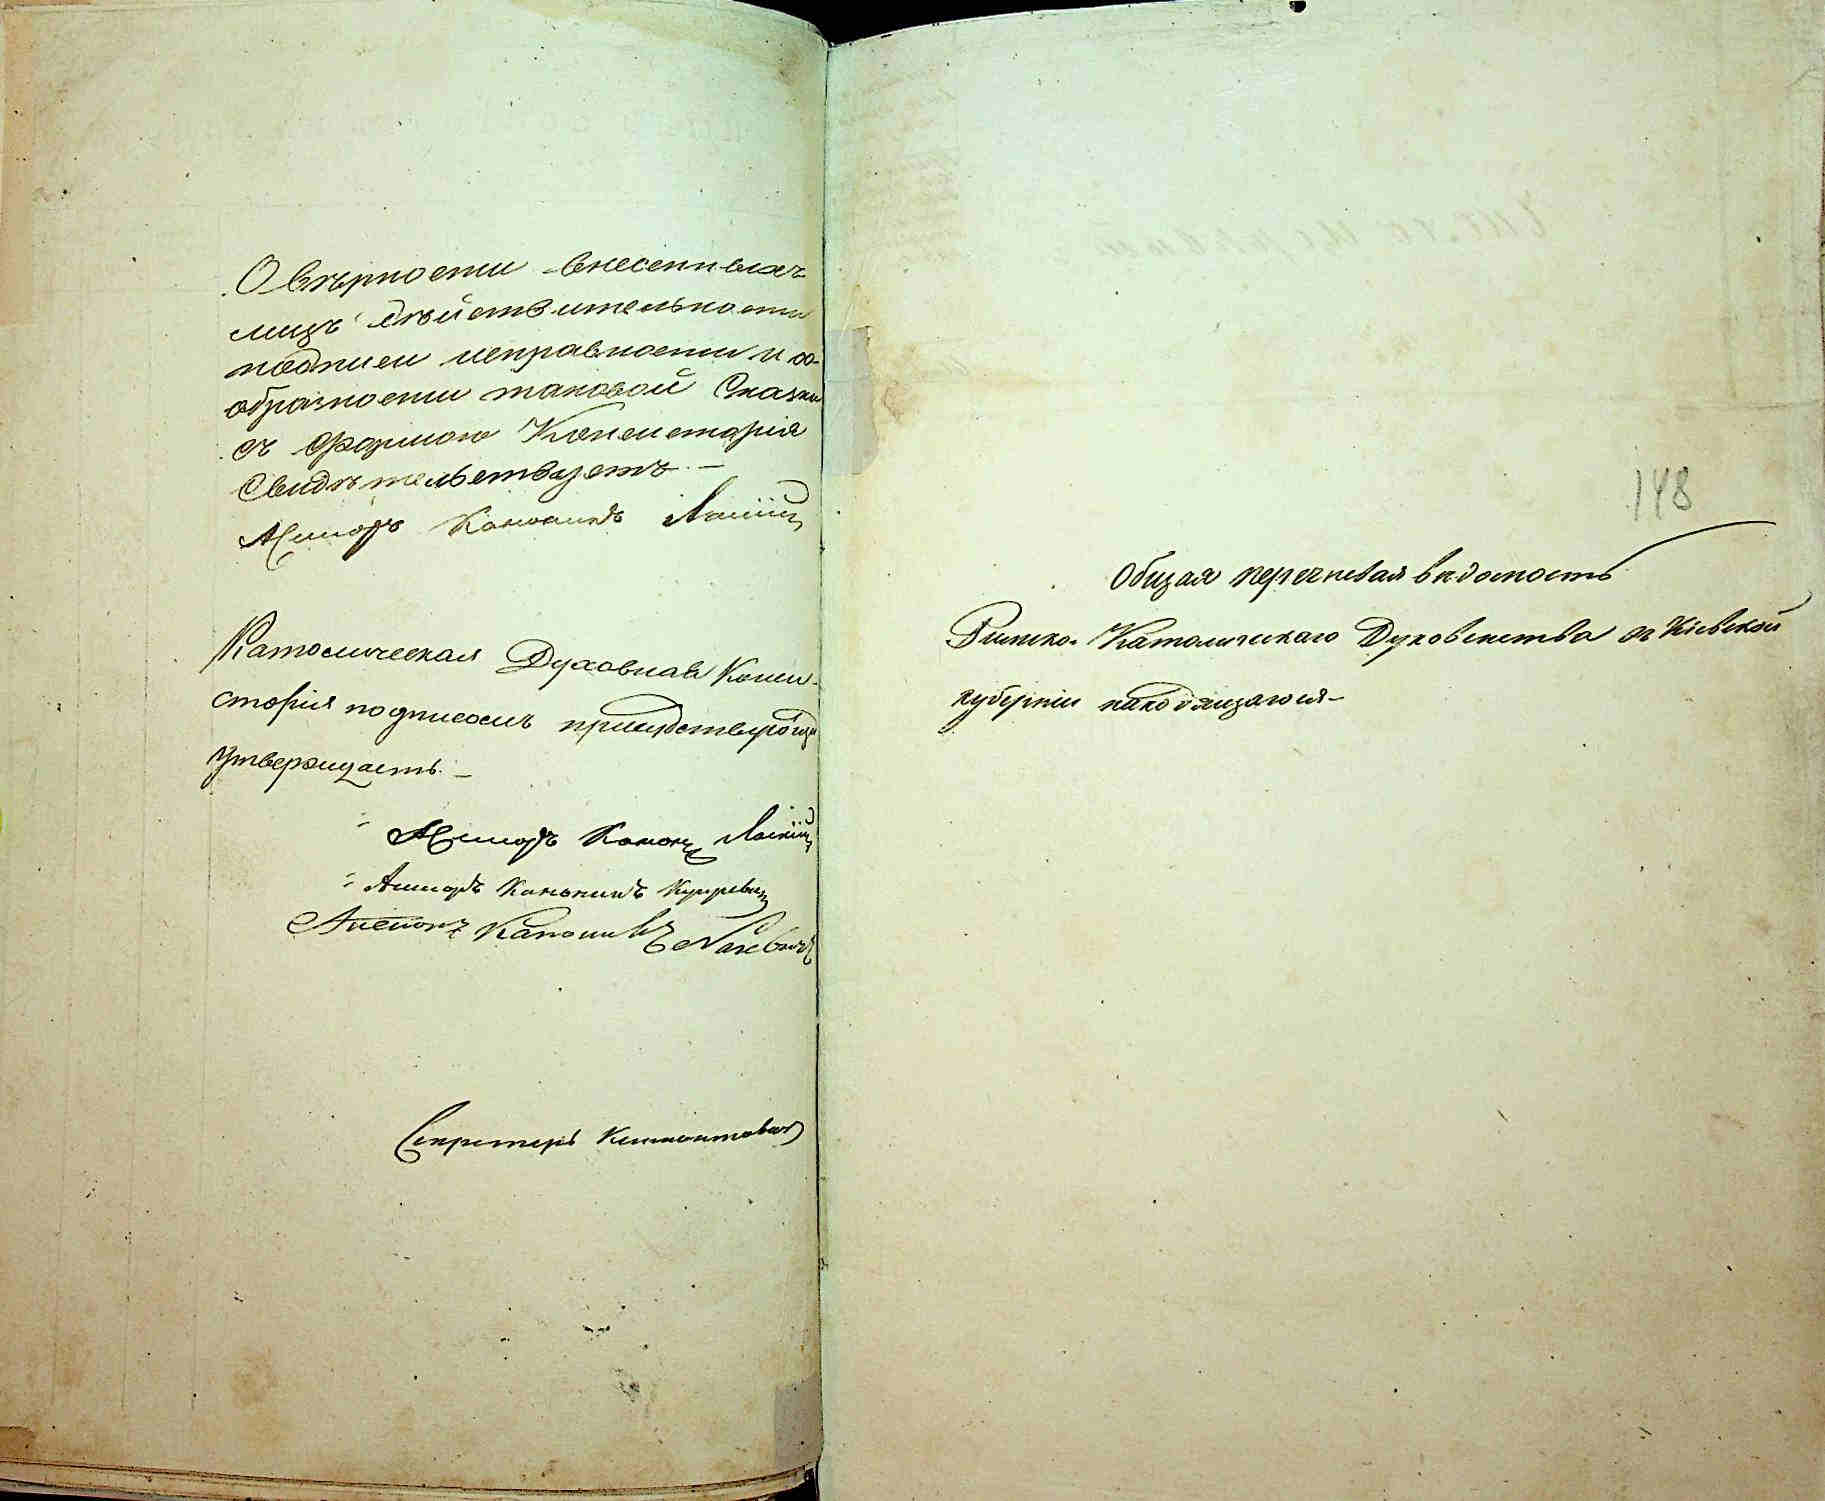 О вѣрности внесенныхъ
лицъ дѣйствительности
подписи исправности и со-
образности таковой Сказки
съ формою Консисторія
Свидѣтельствуетъ. —
Ассесоръ Каноникъ
Католическая Духовная Конси-
сторія подписомъ присудствующихъ
утверждаетъ. —
Ассесоръ Канон.
Ассесоръ Каноникъ
Каноникъ
Секретарь
148
Общая перечневая вѣдомость
Римско-Католическаго Духовенства въ Кіевской
губерніи находящагося —